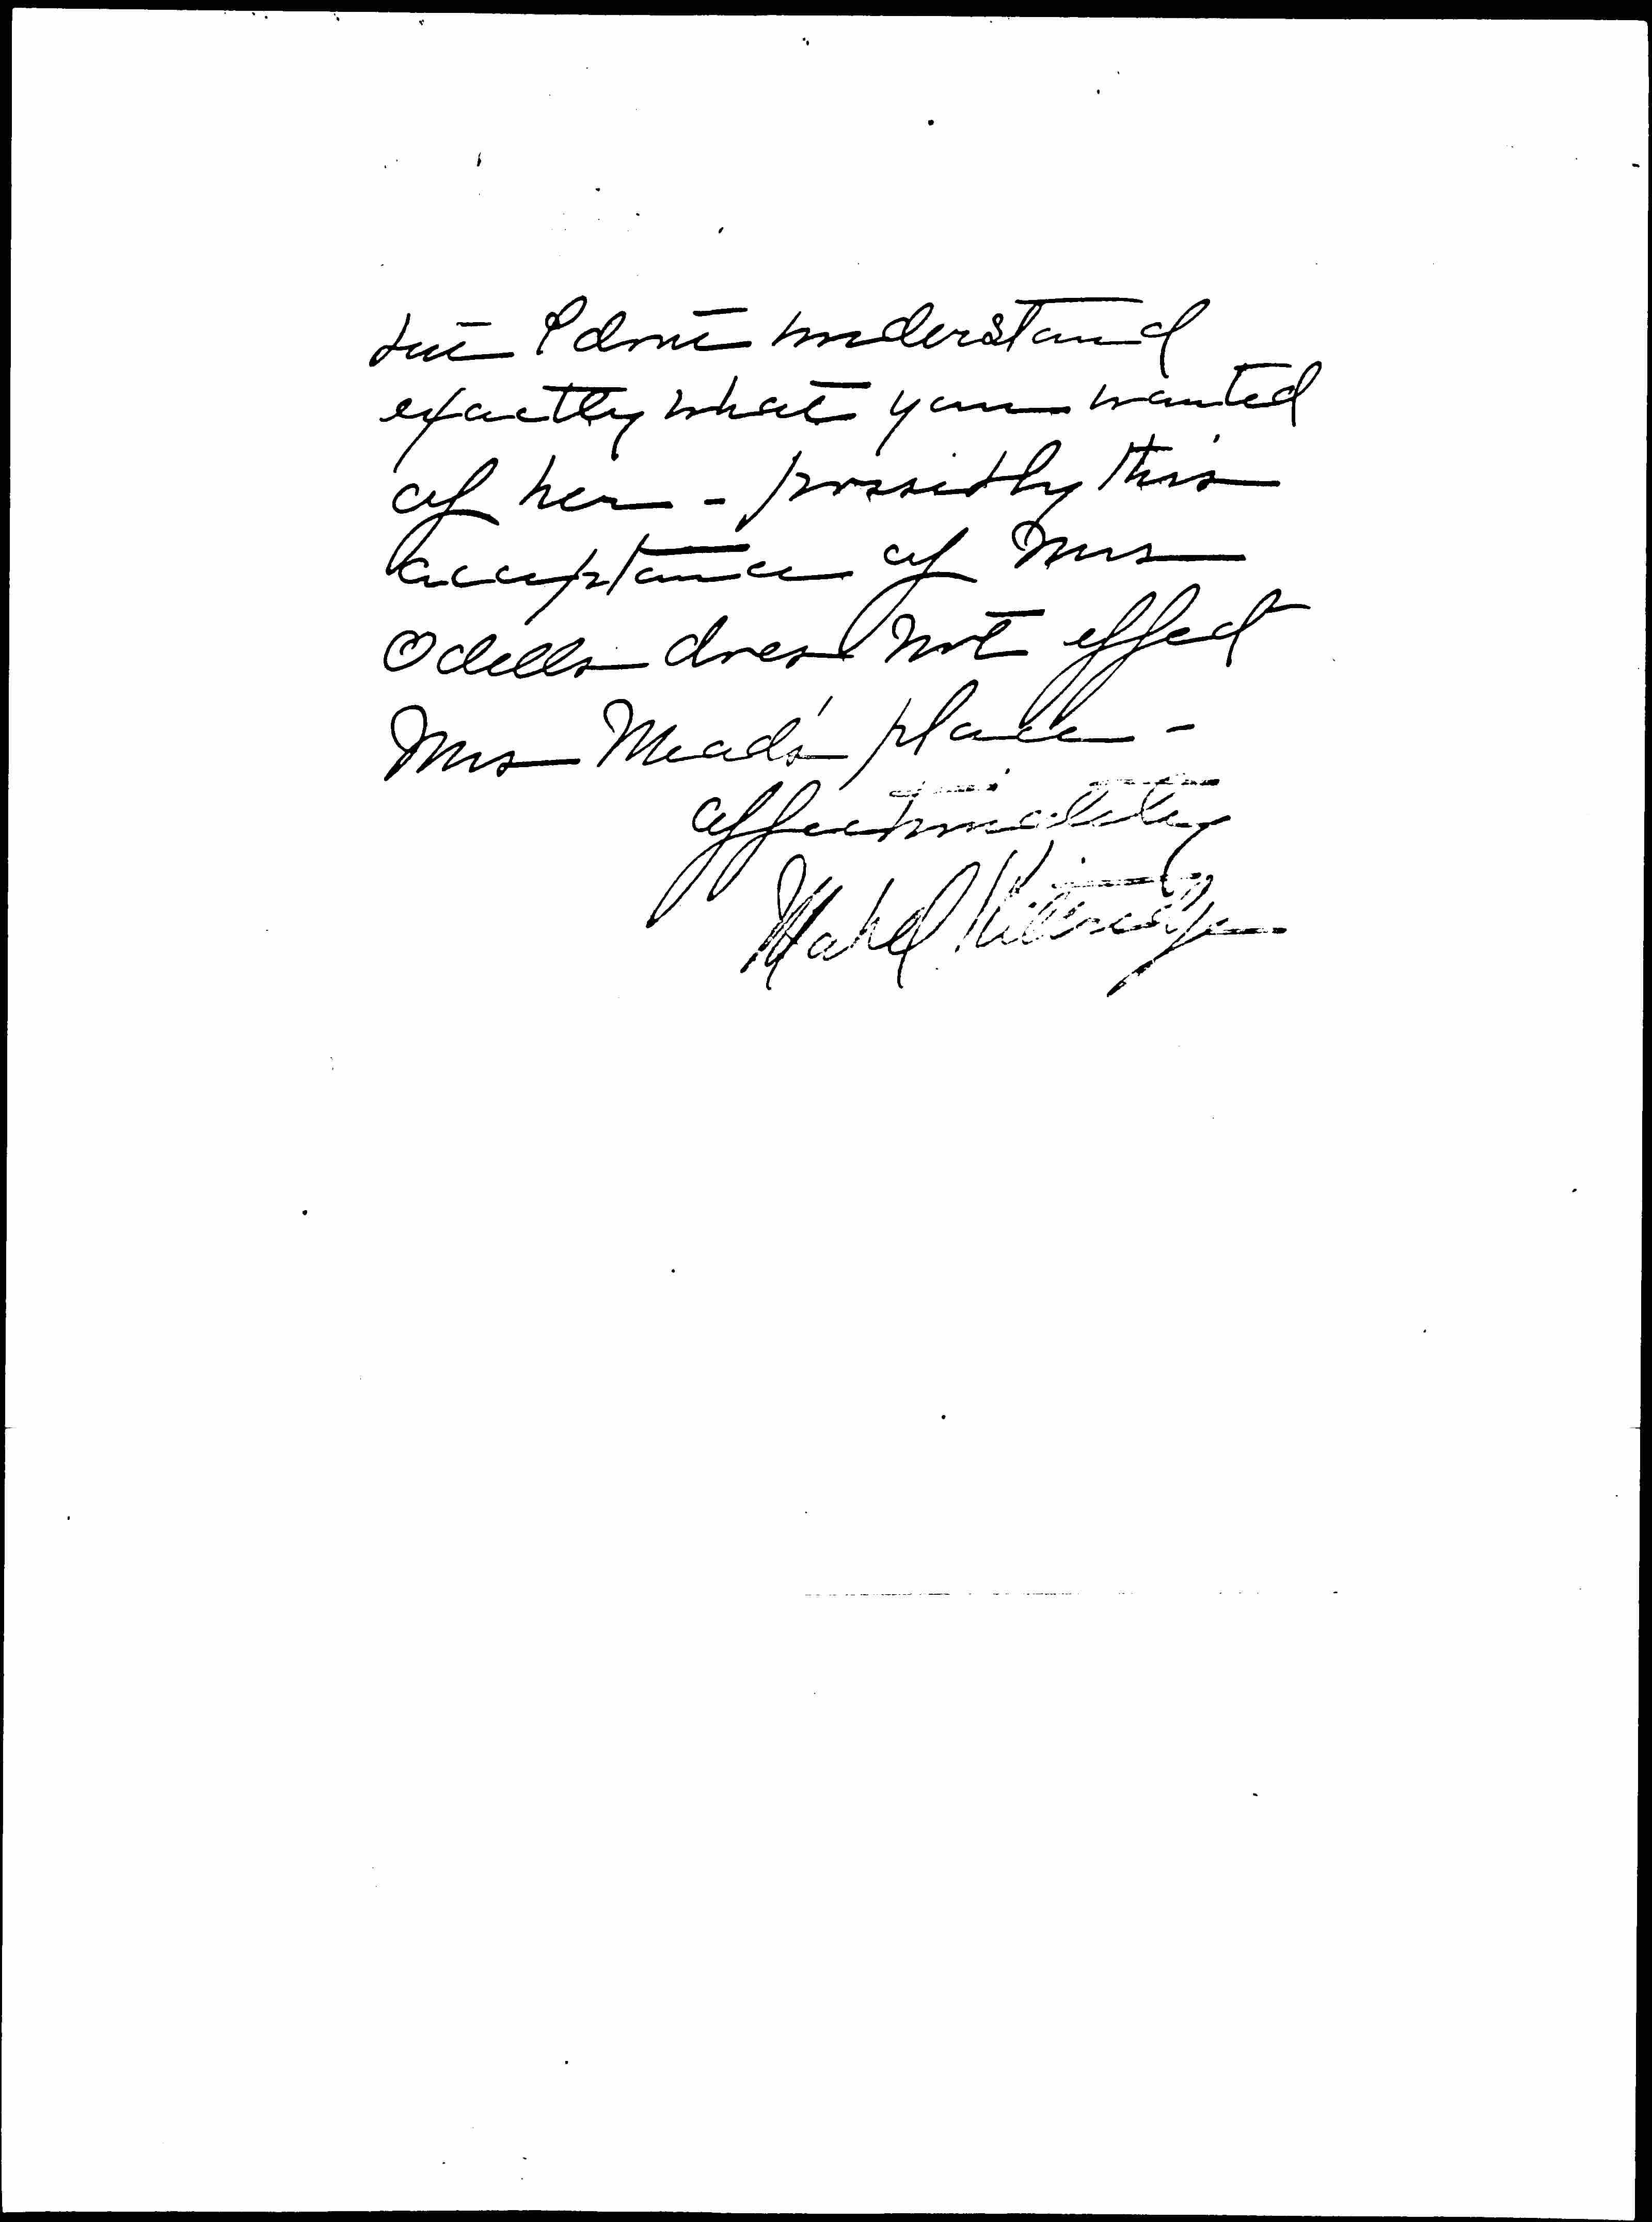 but I dont understand
exactly what you wanted
of her - possibly this
acceptance of Mrs
Odells does not effect
Mrs Mead's place -
affectionately
Mabel Kittredge